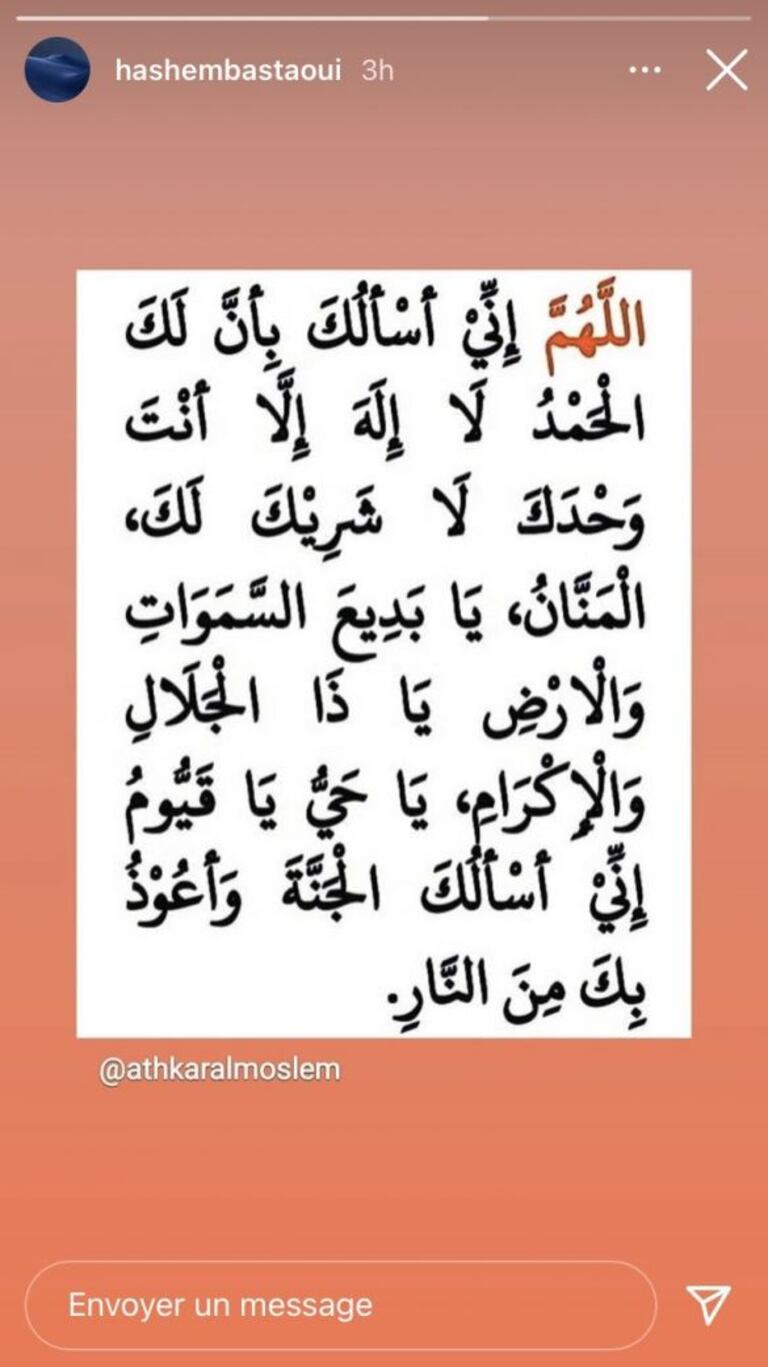 hashembastaoui 3h
اللَّهُمَّ إِنِّيْ أَسْأَلُكَ بِأَنَّ لَكَ
الْحَمْدُ لَا إِلَهَ إِلَّا أَنْتَ
وَحْدَكَ لَا شَرِيْكَ لَكَ،
الْمَنَّانُ، يَا بَدِيعَ السَّمَوَاتِ
وَالْارْضِ يَا ذَا الْجَلَالِ
وَالْإِكْرَامِ، يَا حَيُّ يَا قَيُّومُ
إِنِّيْ أَسْأَلُكَ الْجَنَّةَ وَأَعُوْذُ
بِكَ مِنَ النَّارِ.
@athkaralmoslem
Envoyer un message